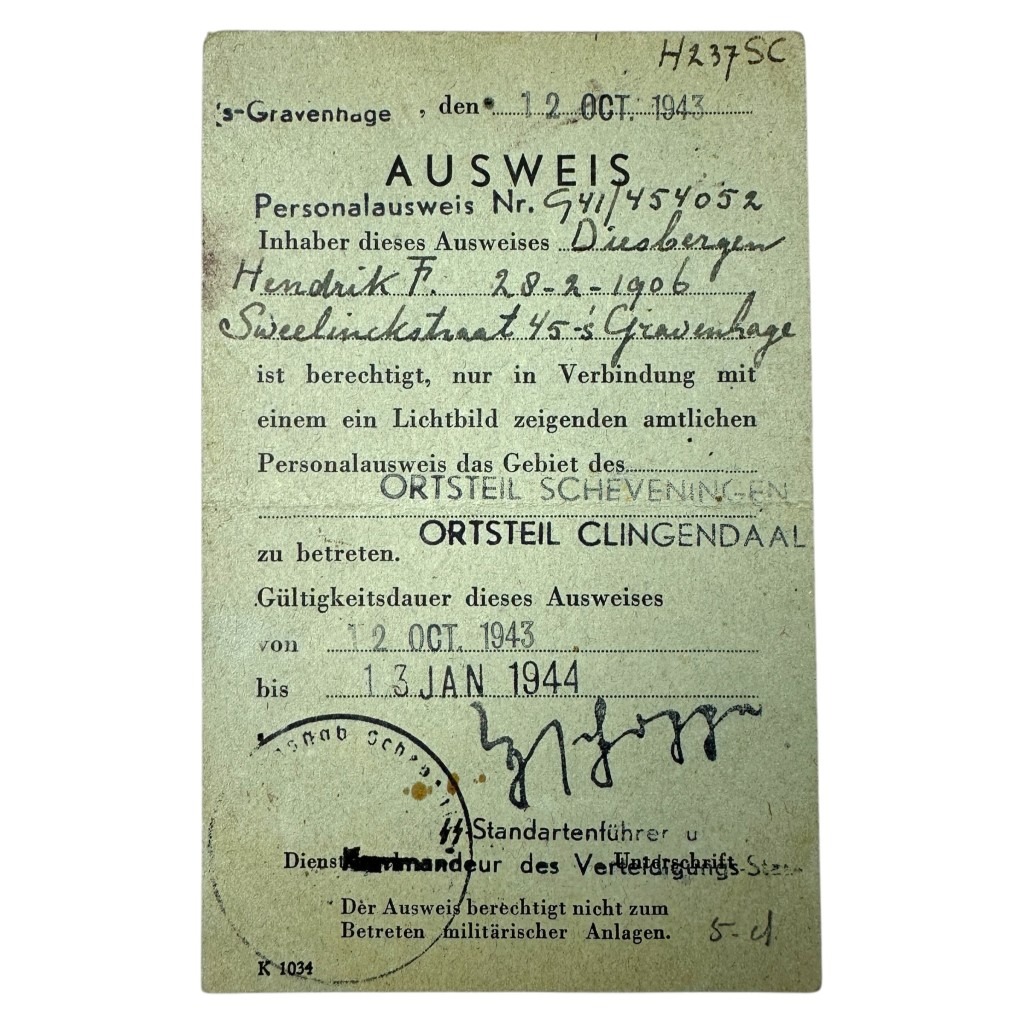 H237SC
's-Gravenhage , den 12 OCT. 1943
AUSWEIS
Personalausweis Nr. G41/454052
Inhaber dieses Ausweises Diesbergen
Hendrik F. 28-2-1906
Sweelinckstraat 45-'s Gravenhage
ist berechtigt, nur in Verbindung mit
einem ein Lichtbild zeigenden amtlichen
Personalausweis das Gebiet des
ORTSTEIL SCHEVENINGEN
ORTSTEIL CLINGENDAAL
zu betreten.
Gültigkeitsdauer dieses Ausweises
von 12 OCT. 1943
bis 13 JAN 1944
SS-Standartenführer u
Dienst
Unterschrift
Kommandeur des Verteidigungs-
Der Ausweis berechtigt nicht zum
Betreten militärischer Anlagen.
K 1034